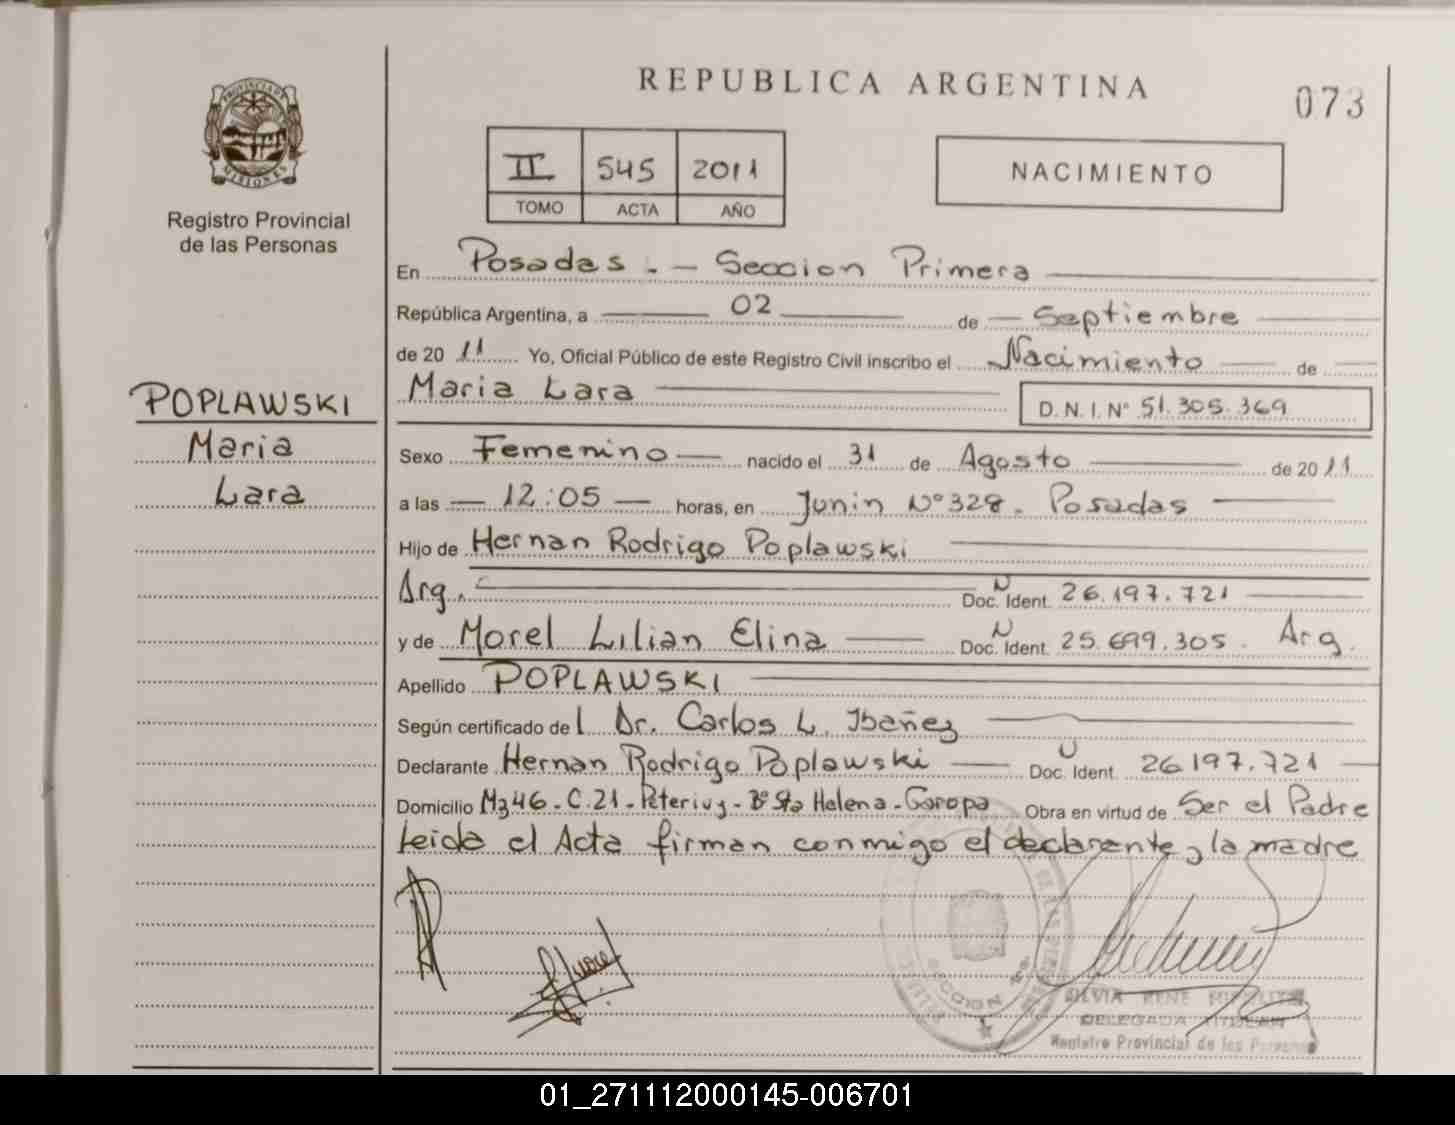 REPUBLICA ARGENTINA
073
PROVINCIA DE
MISIONES
Registro Provincial
de las Personas
II 545 2011
TOMO ACTA AÑO
NACIMIENTO
POPLAWSKI
Maria
Lara
En Posadas. - Seccion Primera
República Argentina, a 02 de Septiembre
de 20 11 Yo, Oficial Público de este Registro Civil inscribo el Nacimiento de
Maria Lara
D.N.I. Nº 51.305.369
Sexo Femenino nacido el 31 de Agosto de 20 11
a las 12:05 horas, en Junin Nº 328. Posadas
Hijo de Hernan Rodrigo Poplawski
Arg. Doc. Ident. 26.197.721
y de Morel Lilian Elina Doc. Ident. 25.699.305. Arg.
Apellido POPLAWSKI
Según certificado del Dr. Carlos L. Ibañez
Declarante Hernan Rodrigo Poplawski Doc. Ident. 26.197.721
Domicilio Mz 46 - C. 21 - Bº Sta Helena - Garupa Obra en virtud de Ser el Padre
Leida el Acta firman conmigo el declarante y la madre
SILVIA RENE
DELEGADA TITULAR
Registro Provincial de las Personas
01_271112000145-006701